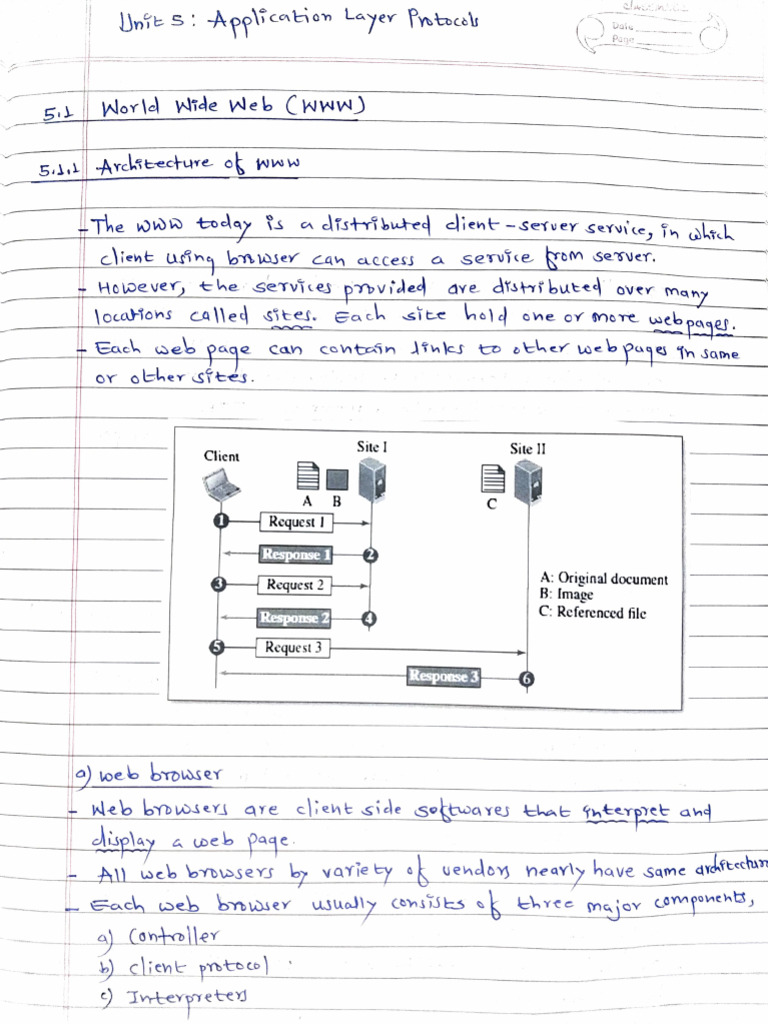 Unit 5: Application Layer Protocols
classmate
Date
Page
5.1 World Wide Web (WWW)
5.1.1 Architecture of WWW
- The WWW today is a distributed client-server service, in which
client using browser can access a service from server.
- However, the services provided are distributed over many
locations called sites. Each site hold one or more webpages.
- Each web page can contain links to other web pages in same
or other sites.
Client Site I Site II
A B C
1 Request 1
Response 1 2
3 Request 2
Response 2 4
5 Request 3
Response 3 6
A: Original document
B: Image
C: Referenced file
a) web browser
- Web browsers are client side softwares that interpret and
display a web page.
- All web browsers by variety of vendors nearly have same architecture
- Each web browser usually consists of three major components,
a) Controller
b) client protocol
c) Interpreters